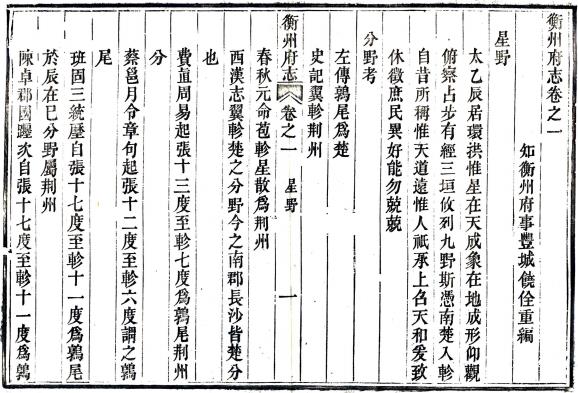 衡州府志卷之一
知衡州府事豐城饒佺重編
星野
太乙辰居環拱惟星在天成象在地成形仰觀
俯察占步有經三垣攸列九野斯憑南楚入軫
自昔所稱惟天道遠惟人祇承上召天和爰致
休徵庶民異好能勿兢兢
分野考
左傳鶉尾爲楚
史記翼軫荆州
衡州府志
卷之一
星野
一
春秋元命苞軫星散爲荆州
西漢志翼軫楚之分野今之南郡長沙皆楚分
也
費直周易起張十三度至軫七度爲鶉尾荆州
分
蔡邕月令章句起張十二度至軫六度謂之鶉
尾
班固三統歷自張十七度至軫十一度爲鶉尾
於辰在巳分野屬荆州
陳卓郡國躔次自張十七度至軫十一度爲鶉